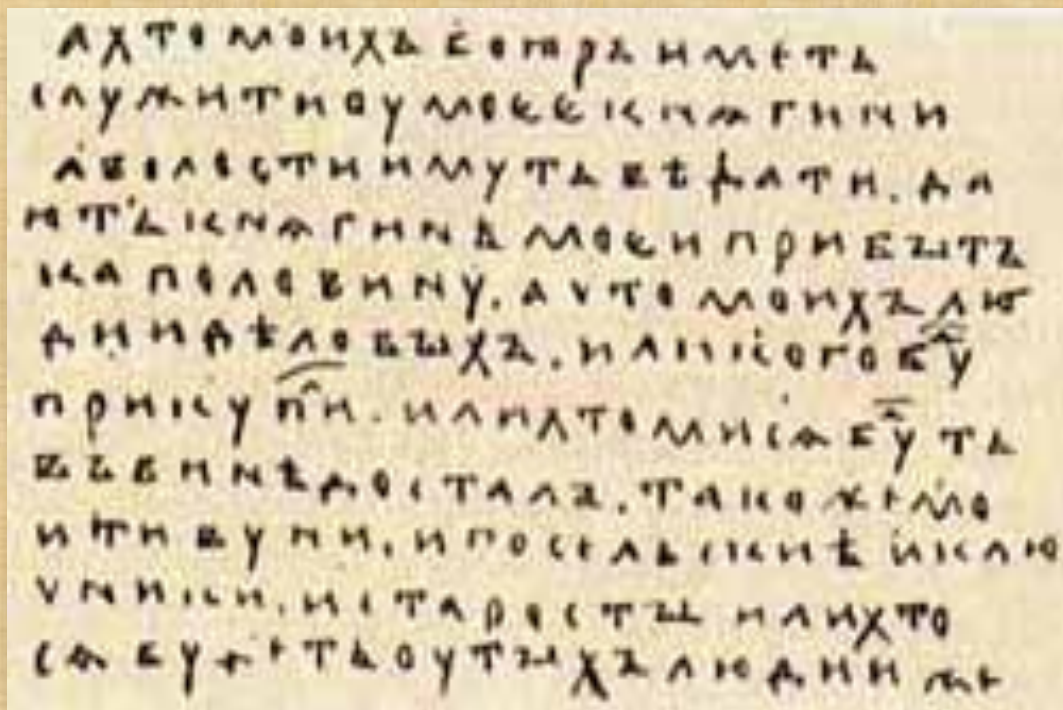 А ХТО МОИХЪ БОꙖРЪ ИМЕТЬ
СЛУЖИТИ ОУ МОЕЕ КНѦГИНИ
А ВОЛОСТИ ИМУТЬ ВѢДАТИ. ДА
ИТЬ КНѦГИНѢ МОЕИ ПРИБЫТЪ
КА ПОЛОВИНУ. А ЧТО МОИХЪ ЛЮ
ДИИ ДѢЛОВЫХЪ. ИЛИ КОГО БУ
ПРИКУПИ. ИЛИ ХТО МИ СѦ БУ ТЬ
ВЪ ВИНѢ ДОСТАЛЪ. ТАКОЖЕ МО
И ТИВУНИ. И ПОСЕЛЬСКИѢ И КЛЮ
ЧНИКИ. И СТАРОСТЫ ИЛИ ХТО
СѦ БУДЕТЬ ОУ ТЫХЪ ЛЮДИИ ЖЕ